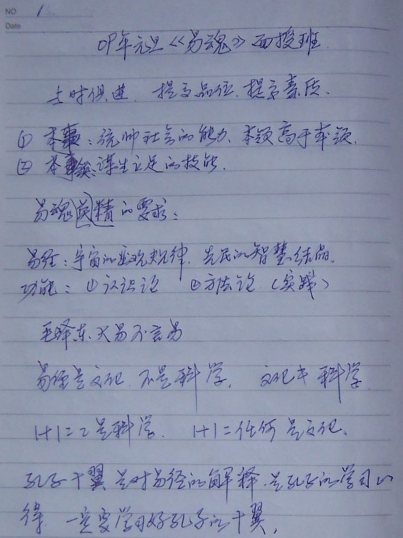 NO. 1
Date
09年元旦《易魂》面授班
与时俱进 提高品位 提高素质.
① 本事：统帅社会的能力. 本领高于本领
② 本领：谋生立足的技能.
易魂 精的要求：
易经：宇宙的宏观规律 先民的智慧结晶.
功能： ①认识论 ②方法论（实践）
毛泽东 大易不言易
易经是文化 不是科学, 文化 科学
1+1=2是科学. 1+1=任何 是文化.
孔子十翼 是对易经的解释 是孔子的学习心
得 一定要学习好孔子的十翼.